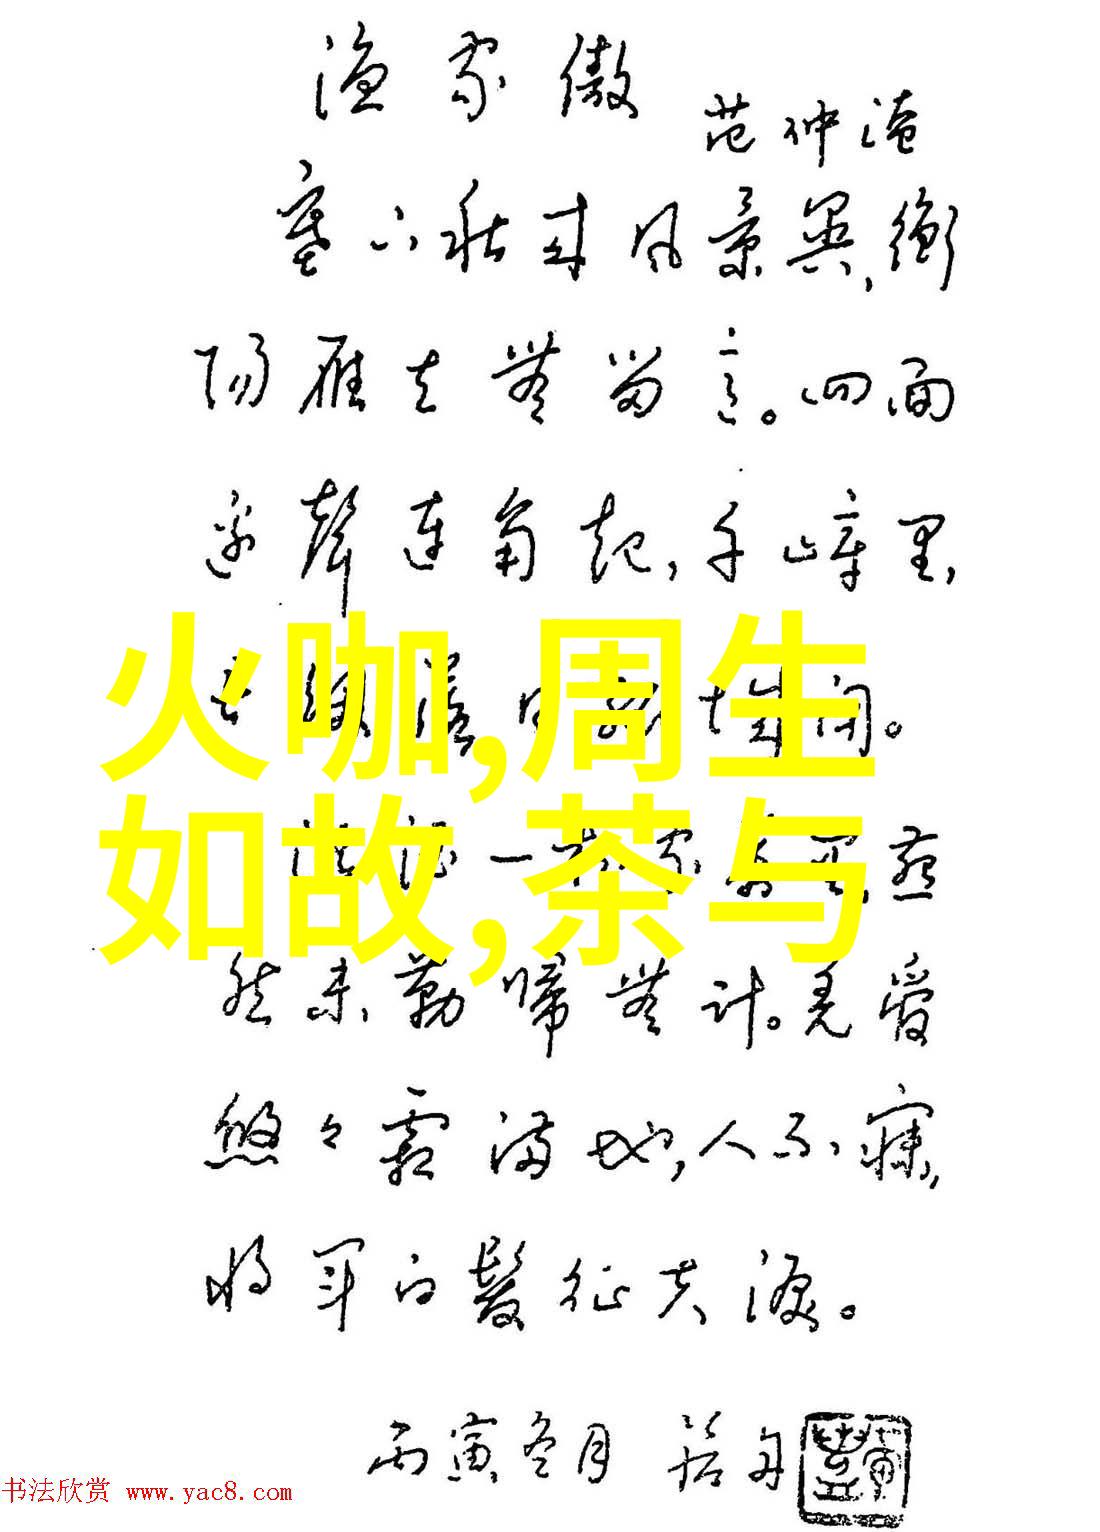 渔家傲
范仲淹
塞下秋来风景异,衡
阳雁去無留意。四面
边聲连角起,千嶂里,
長烟落日孤城闭。
火咖,周生
如故,茶与
浊酒一杯家万里,燕
然未勒归無计。羌管
悠々霜满地,人不寐,
将军白髮征夫淚。
丙寅冬月
书法欣赏 www.yac8.com